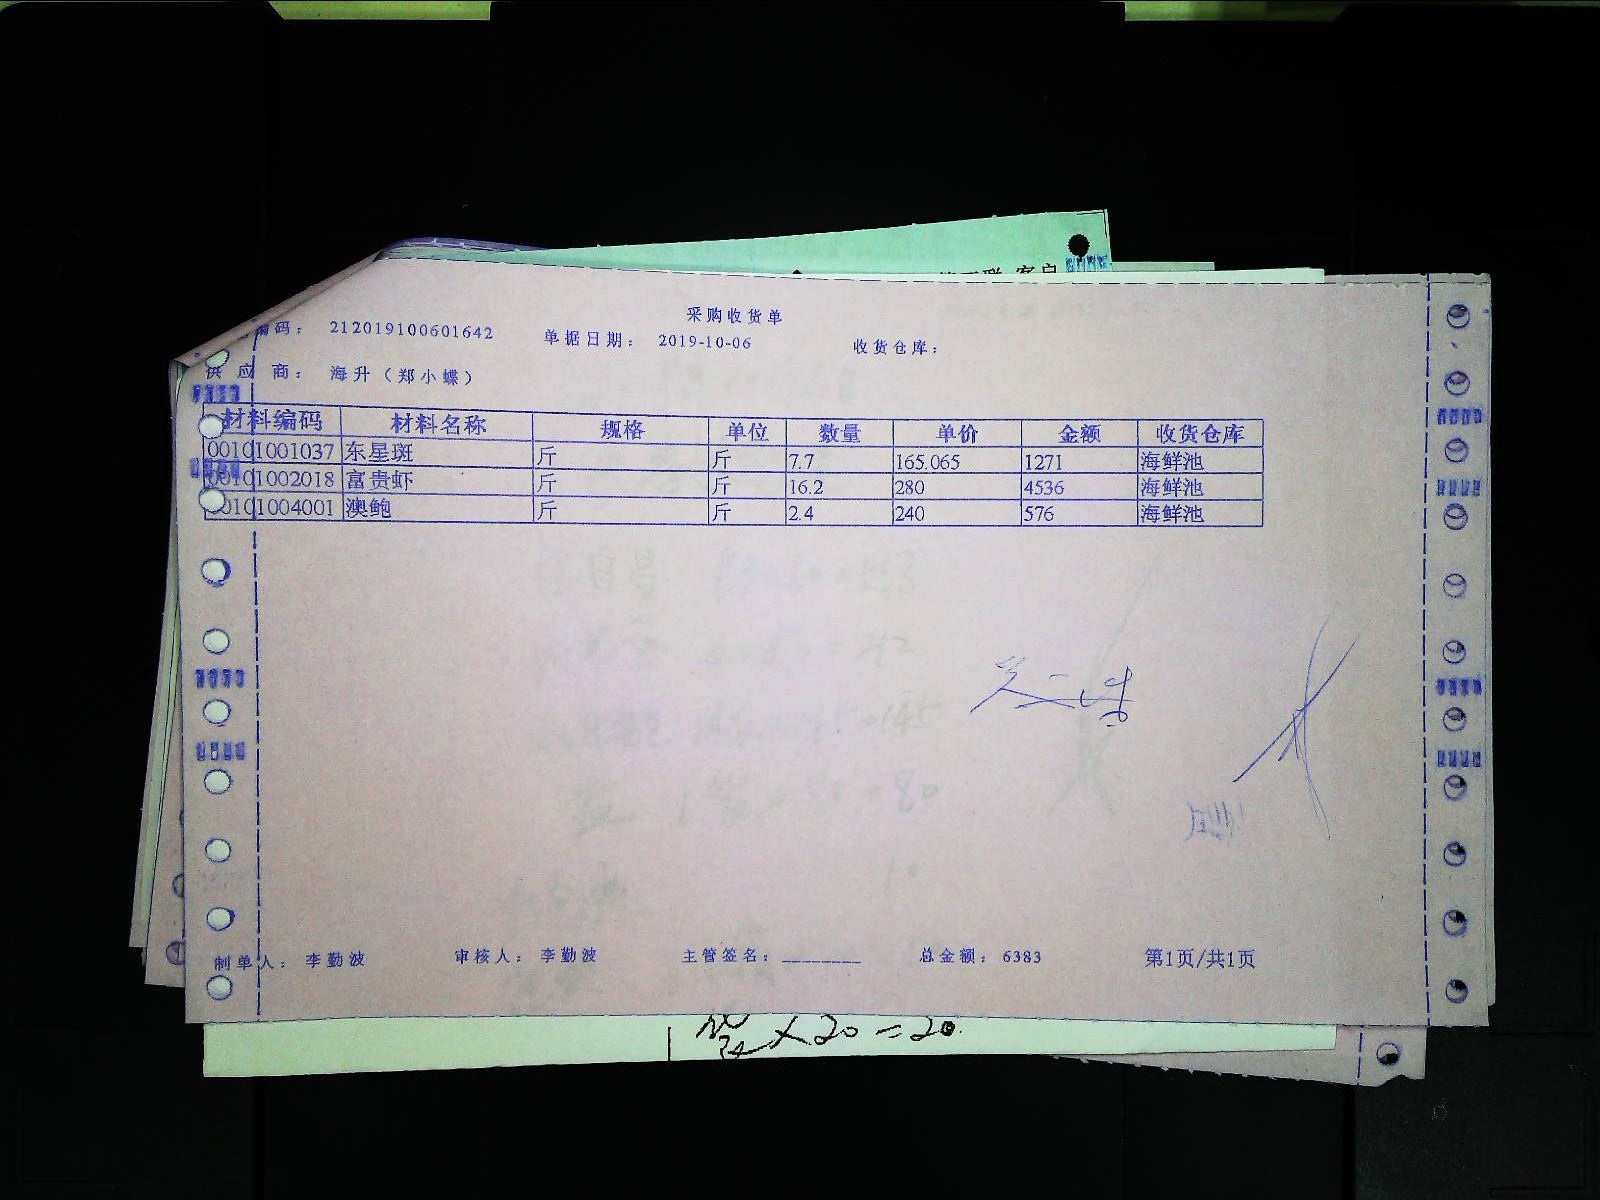 客户
采购收货单
编码： 212019100601642 单据日期： 2019-10-06 收货仓库：
供应商： 海升（郑小蝶）
材料编码 材料名称 规格 单位 数量 单价 金额 收货仓库
00101001037 东星斑 斤 斤 7.7 165.065 1271 海鲜池
00101002018 富贵虾 斤 斤 16.2 280 4536 海鲜池
00101004001 澳鲍 斤 斤 2.4 240 576 海鲜池
制单人： 李勤波 审核人： 李勤波 主管签名：________ 总金额： 6383 第1页/共1页
×20=20